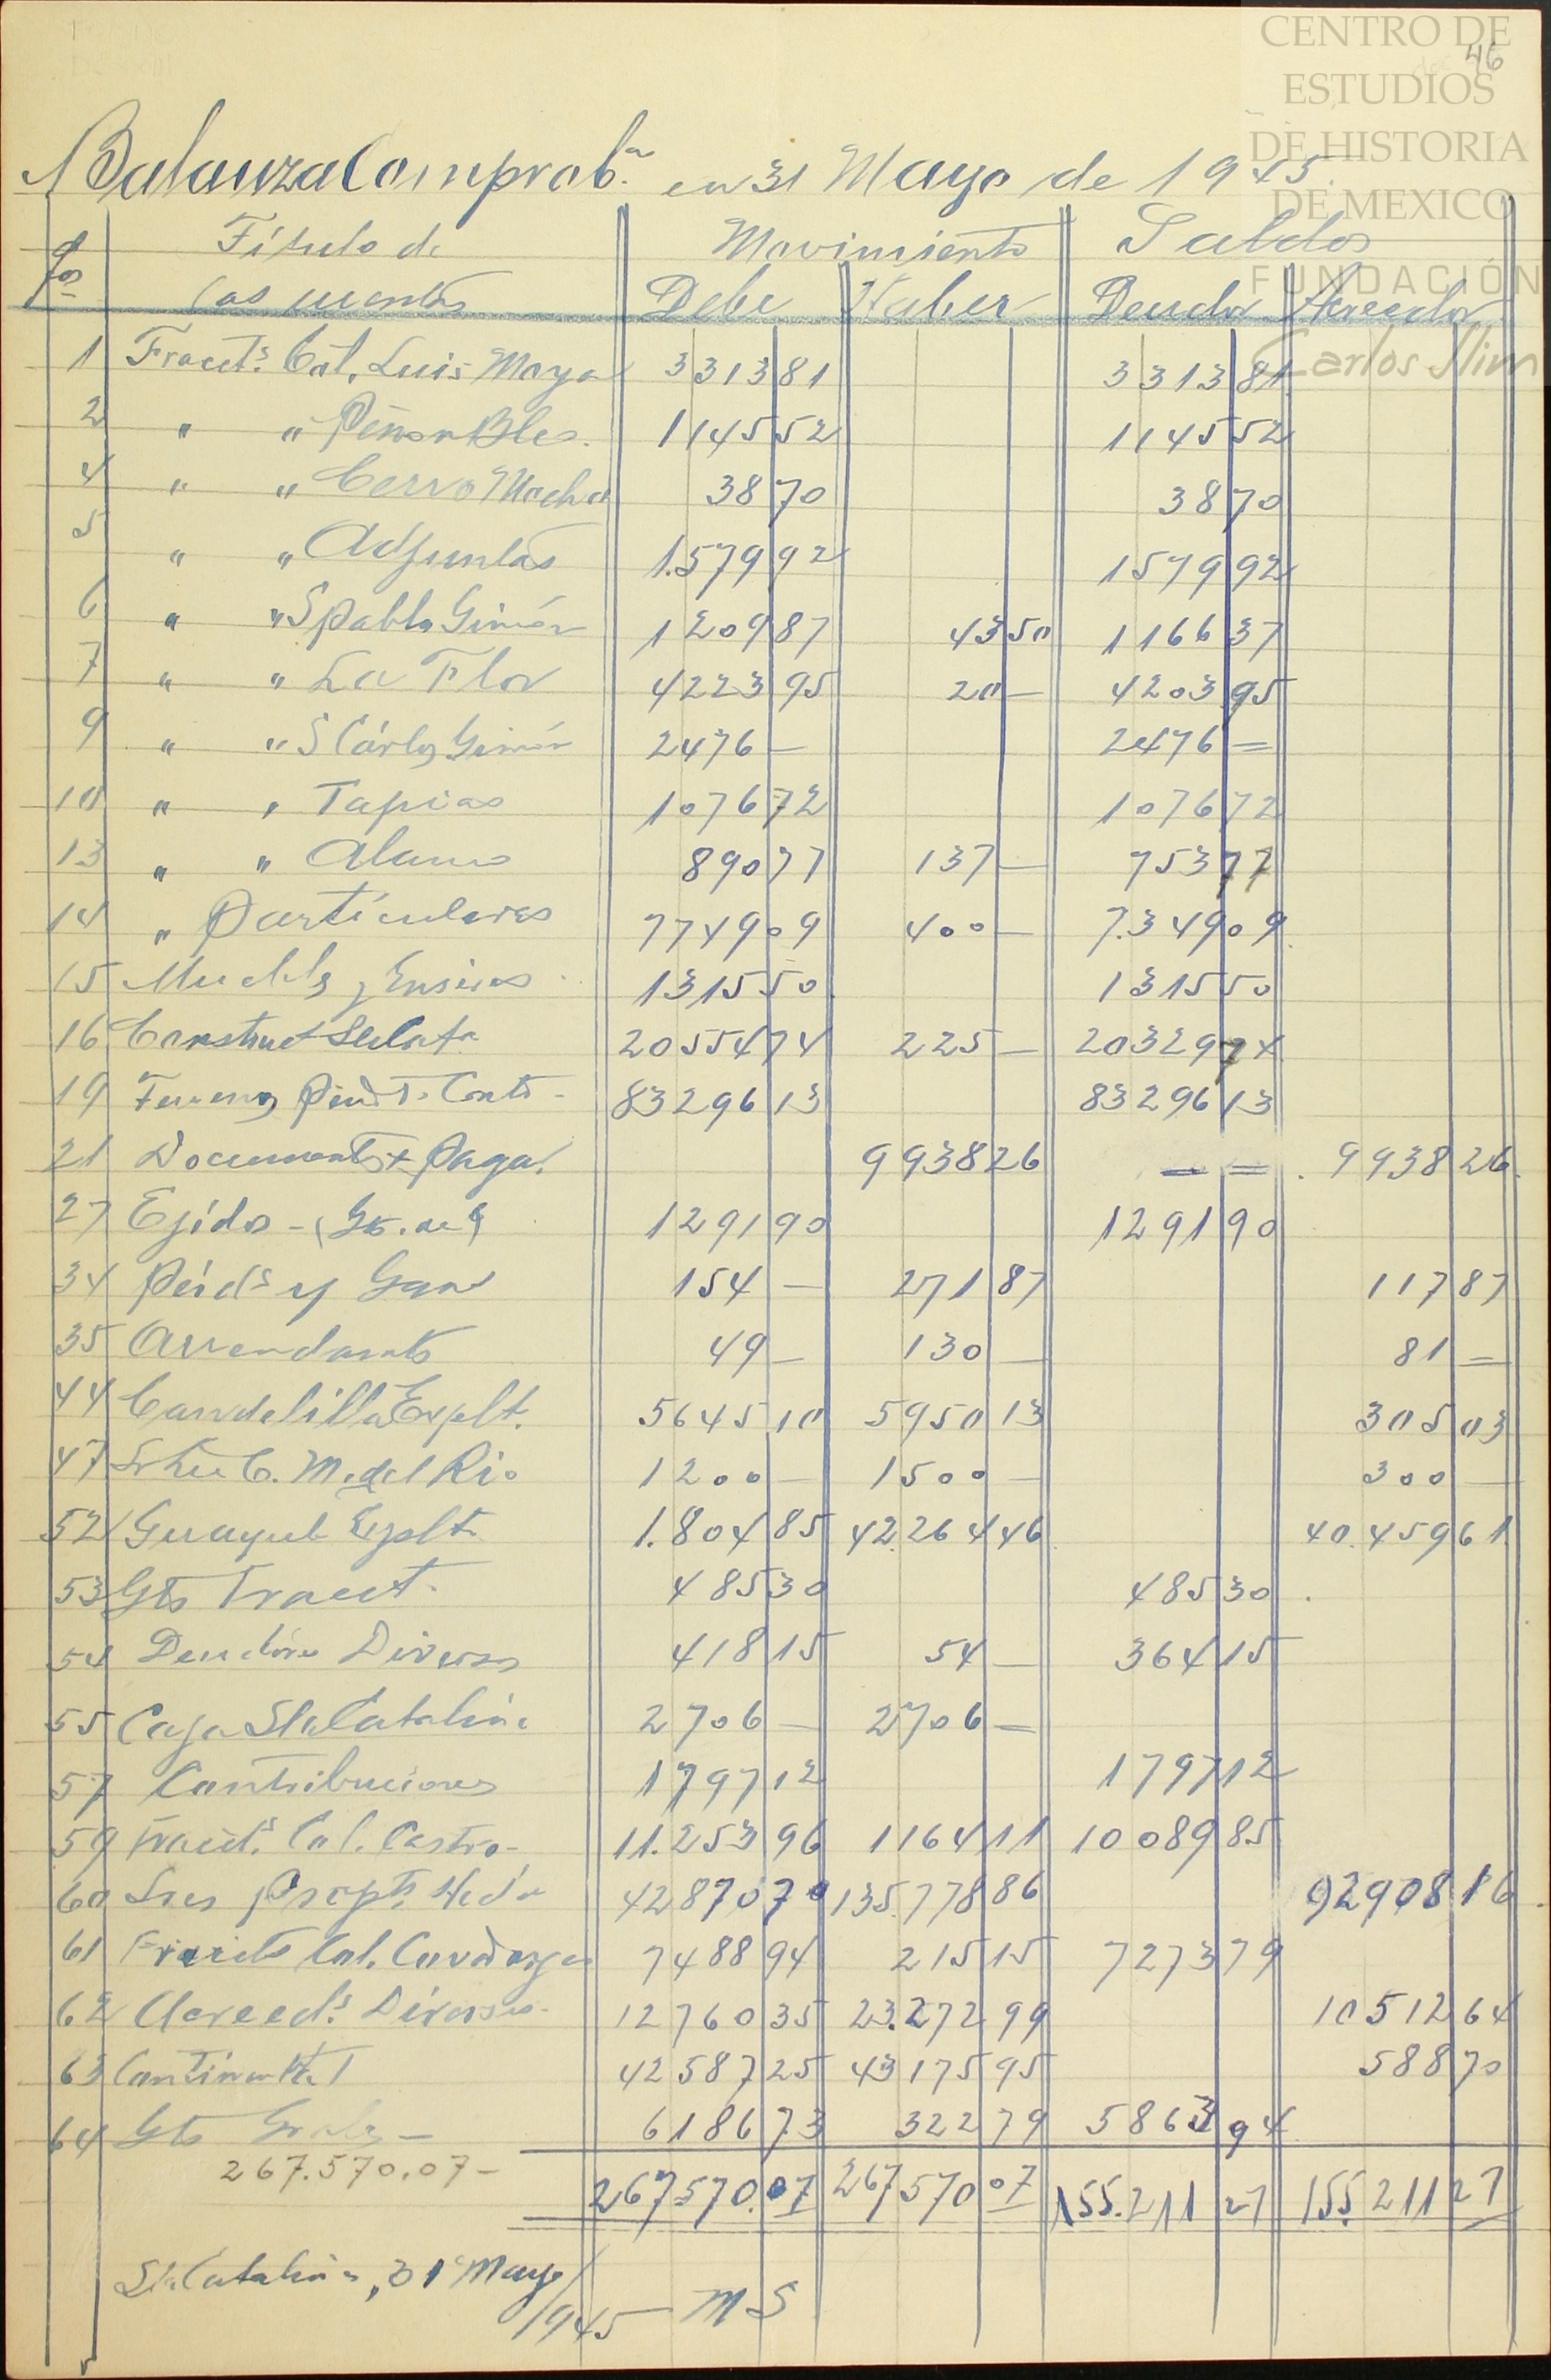 CENTRO DE
ESTUDIOS
DE HISTORIA
DE MEXICO
FUNDACIÓN
Carlos Slim
46
Balanza Comprob.ⁿ en 31 Mayo de 1945.
fos Título de las cuentas Movimiento Saldos
Debe Haber Deudor Acreedor
1 Fracct.s Col. Luis Moya 3313 81 3313 81
2 " " Peñon Blco. 1145 52 1145 52
4 " " Cerro Mocho 38 70 38 70
5 " " Adjuntas 1.579 92 1579 92
6 " " S Pablo Gimón 1209 87 43 50 1166 37
7 " " La Flor 4223 95 20 — 4203 95
9 " " S Cárlos Gimón 2476 — 2476 =
10 " " Tapias 1076 72 1076 72
13 " " Alamo 890 77 137 — 753 77
14 " Particulares 7749 09 400 — 7.349 09
15 Muebls y Enseres 1315 50 1315 50
16 Construct Sta Cata 20554 74 225 — 20329 74
19 Terrenos Pendt. Cont. 83296 13 83296 13
21 Documents x Paga. 9938 26 — = 9938 26
27 Ejidos - 1291 90 1291 90
34 Pérds y Gan 154 — 271 87 117 87
35 Arrendamts 49 — 130 — 81 =
44 Candelilla Explt. 5645 10 5950 13 305 03
47 C. M. del Rio 1200 — 1500 — 300 —
52 Guayule Explt. 1.804 85 42.264 46 40.459 61
53 Gts Fracct. 485 30 485 30
54 Deudores Diversos 418 15 54 — 364 15
55 Caja Sta Catalina 2706 — 2706 —
57 Contribuciones 1797 12 1797 12
59 Fracct.s Col. Castro - 11.253 96 1164 11 10089 85
60 Sres Propts. Hcda 42870 70 135.778 86 92908 16
61 Fraccts Col. 7488 94 215 15 7273 79
62 Acreed.s Diversos - 12760 35 23.272 99 10512 64
63 Continental 42587 25 43175 95 588 70
64 Gts Grals — 6186 73 322 79 5863 94
267.570.07 — 267 570.07 267 570 07 155.211 27 155.211 27
Sta Catalina, 31 Mayo/
1945 — M S